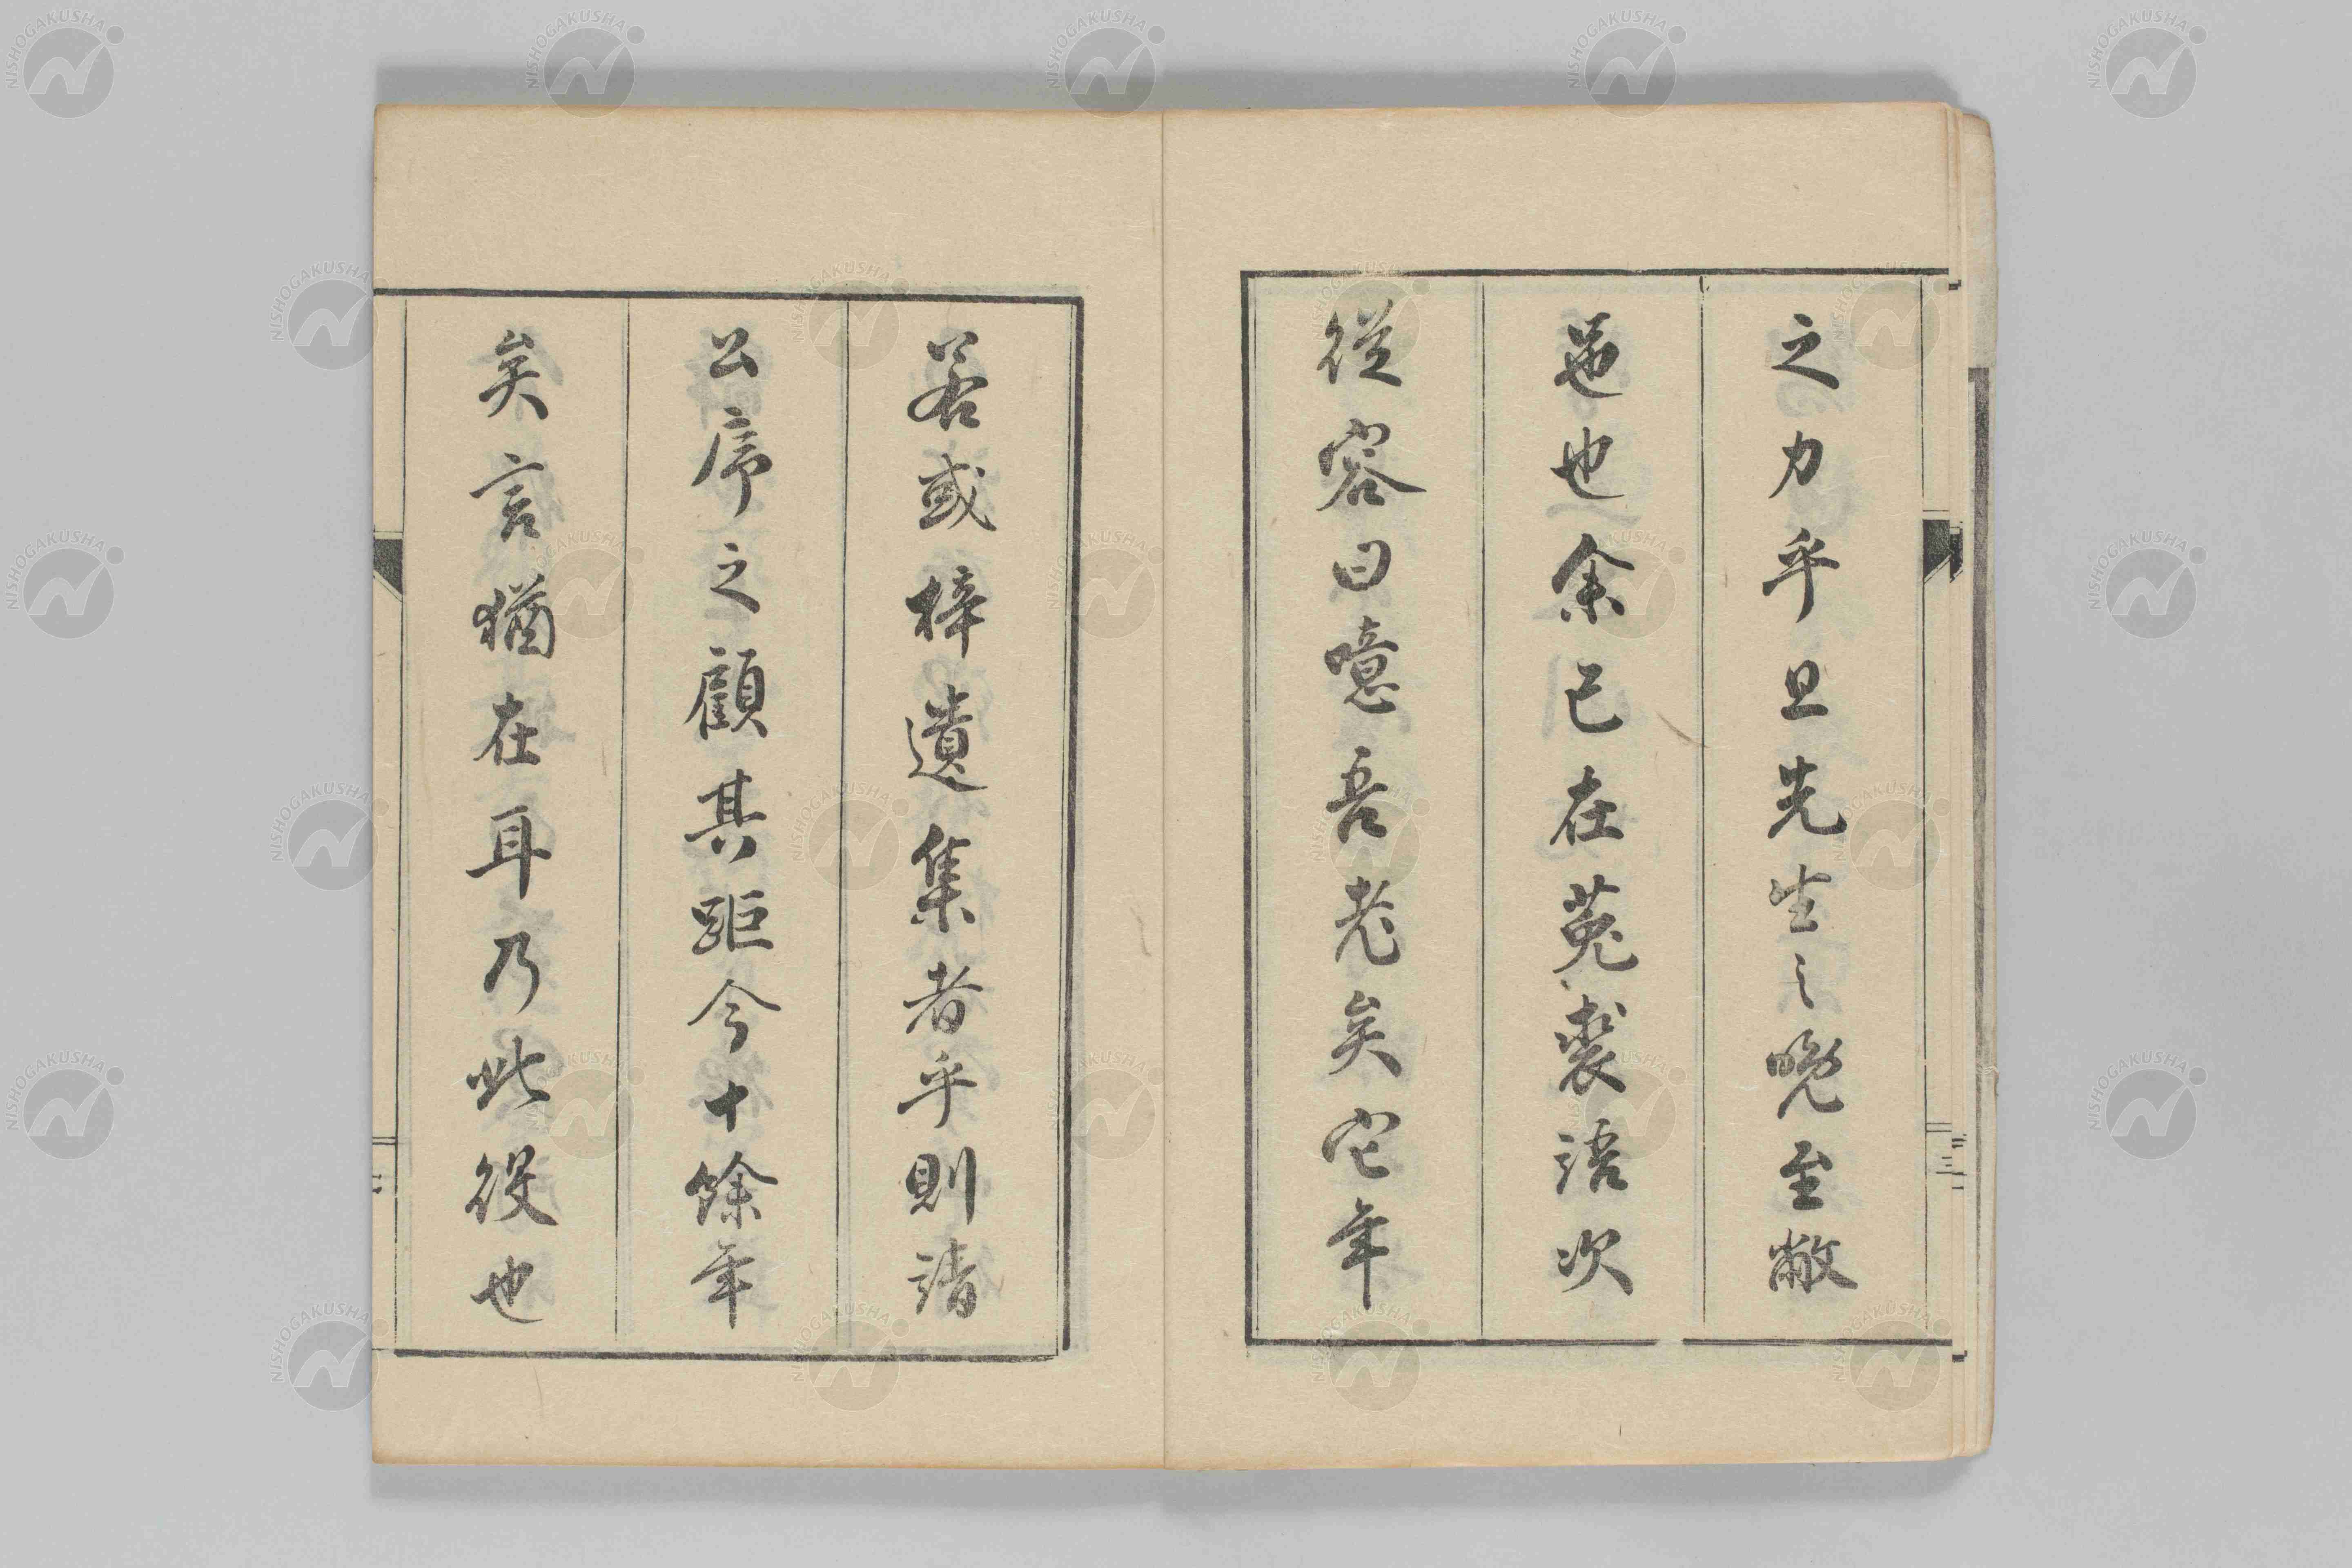 之力乎且先生之晩至敝
邑也余已在菟裘語次
從容曰噫吾老矣它年
若或梓遺集者乎則請
公序之顧其距今十餘年
矣言猶在耳乃此役也
NISHOGAKUSHA